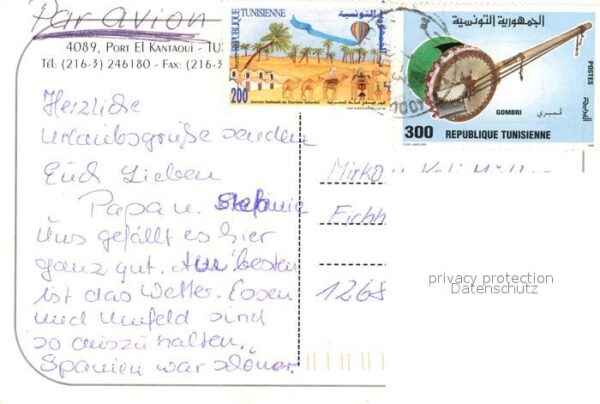 Par avion
4089, PORT EL KANTAOUI - TU
Tél: (216-3) 246180 - Fax: (216-3
REPUBLIQUE TUNISIENNE
200
الجمهورية التونسية
GOMBRI
قمبري
POSTES
300 REPUBLIQUE TUNISIENNE
Herzliche
Urlaubsgrüße senden
Euch Lieben
Papa u. Stefanie
Uns gefällt es hier
ganz gut. Am besten
ist das Wetter. Essen
und Umfeld sind
so auszuhalten.
Spanien war schöner.
Mirko
Eichh
1268
privacy protection
Datenschutz